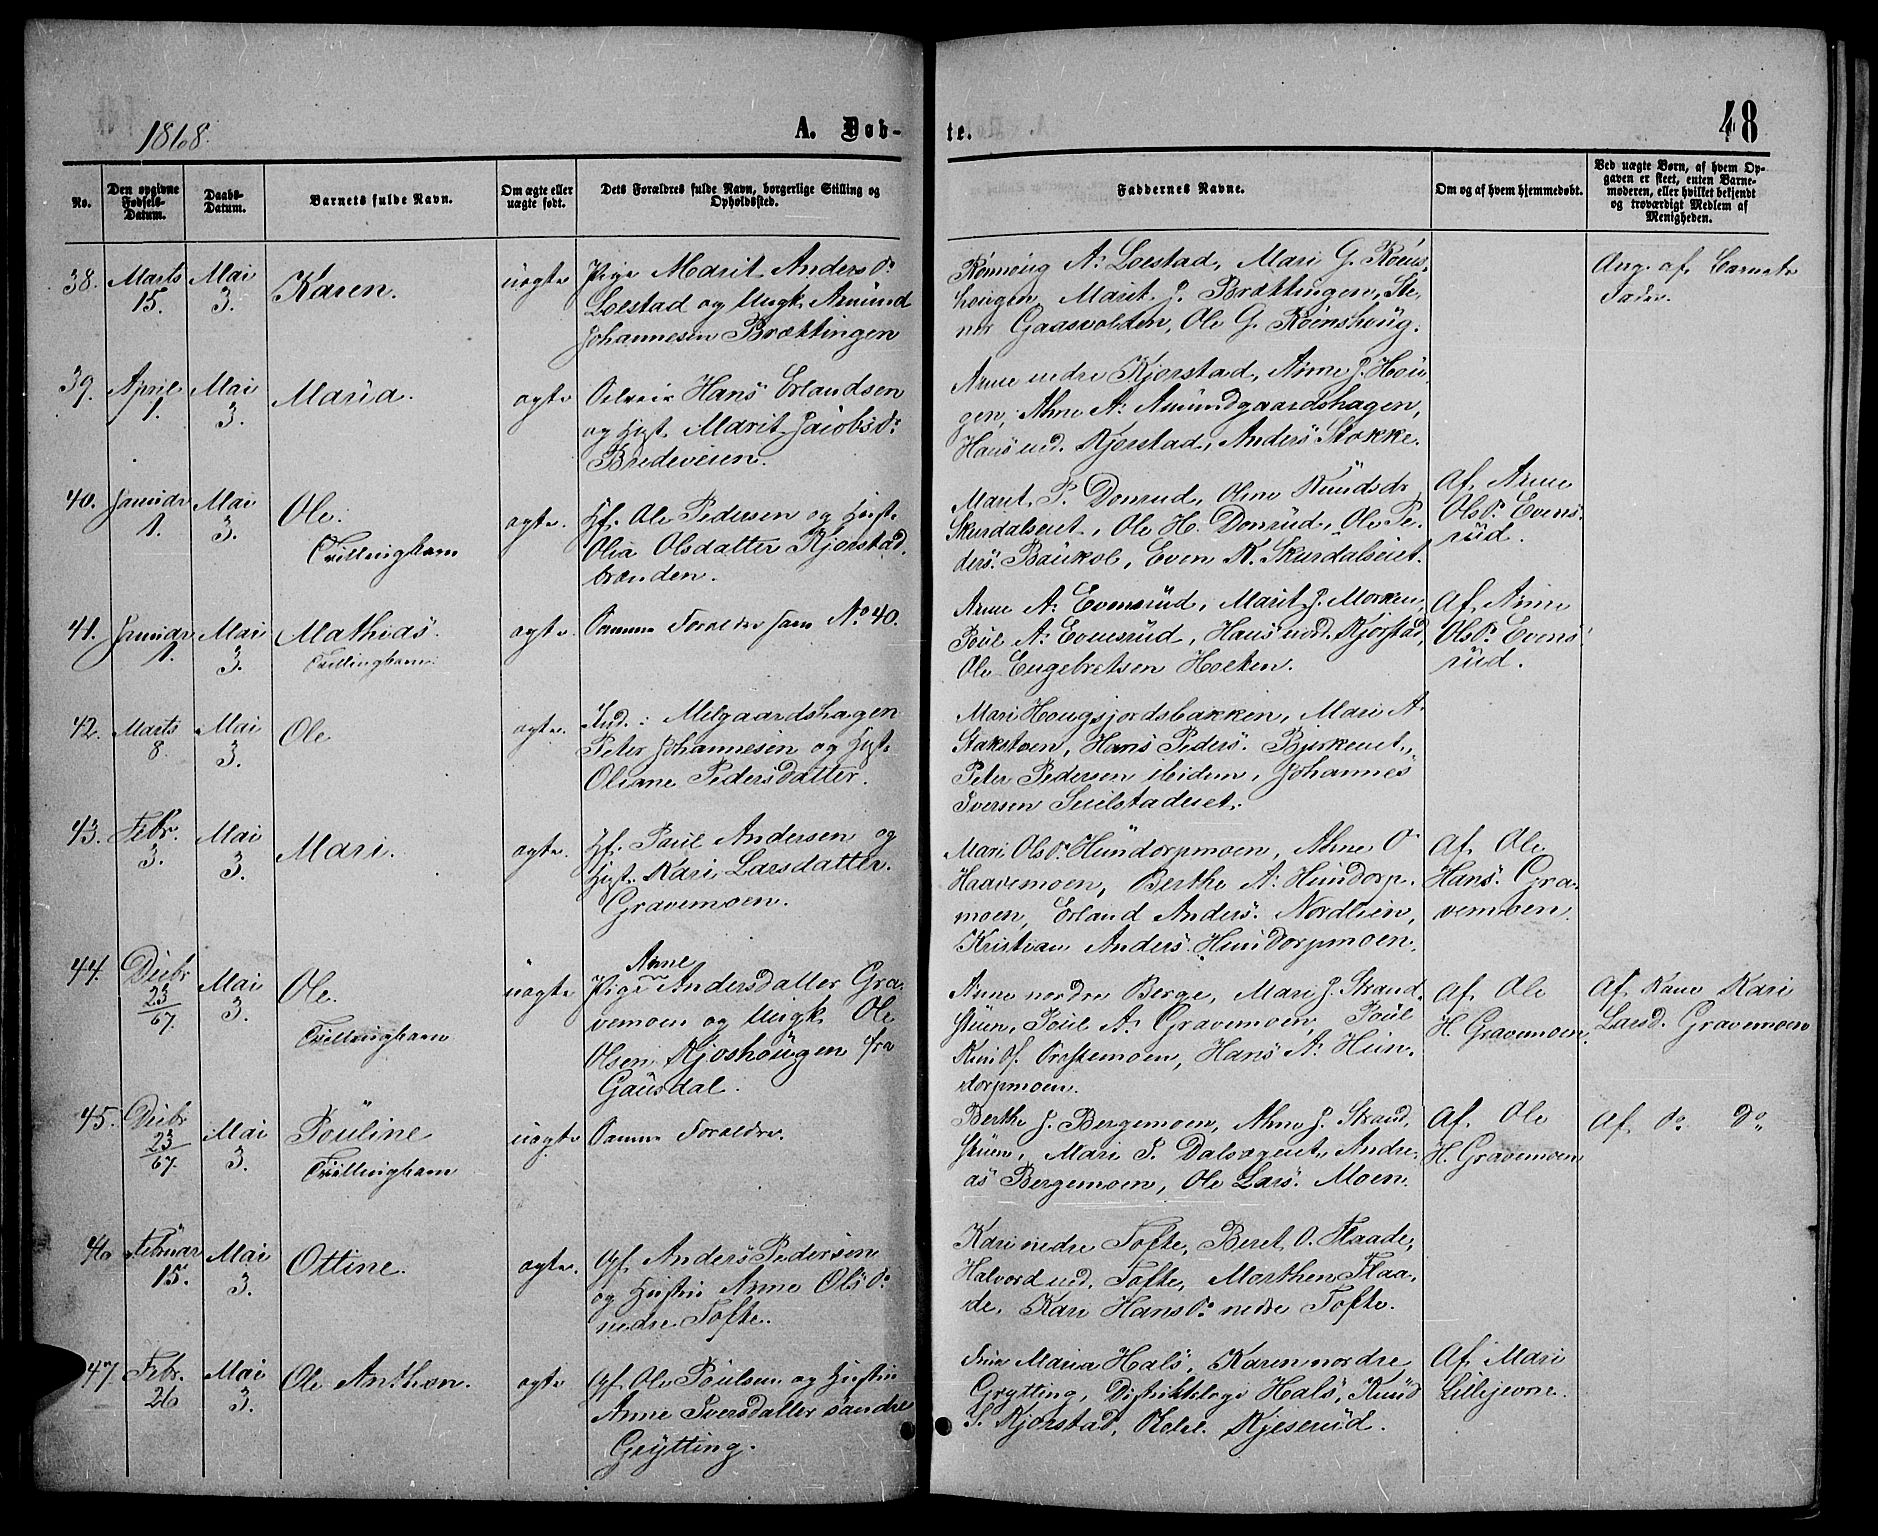 1868.
A. Døb-
te.
48
No.
Den opgivne Fødsels-Datum.
Daabs-Datum.
Barnets fulde Navn.
Om ægte eller uægte født.
Dets Forældres fulde Navn, borgerlige Stilling og Opholdssted.
Faddernes Navne.
Om og af hvem hjemmedøbt.
Ved uægte Børn, af hvem Op-
gaven er skeet, enten Barne-
moderen, eller hvilket bekjendt
og troværdigt Medlem af
Menigheden.
38. Marts 15. Mai 3. Karen. uægte
Pige Marit Andersd.
Loestad og Ungk. Amund
Johannesen Brættingen
Rønnoug A. Loestad, Mari G. Roens-
hougen, Marit J. Brættingen, Ste-
ner Gaasvolden, Ole G. Roenshoug.
Ang. af Barnets
Fader.
39. April 1. Mai 3. Maria. ægte
Hans Erlandsen
og Hust. Marit Jacobsd.
Bredeveien.
Anne nedre Kjorstad, Anne J. Hou-
gen, Ahne A. Amundgaardshagen,
Hans ned. Kjorstad, Anders Stokke.
40. Januar 1. Mai 3. Ole. ægte.
Tvillingbarn
Hf. Ole Pedersen og Hust.
Olia Olsdatter Kjorstad-
brænden.
Marit P. Donrud, Oline Knudsdr
Skurdalseiet, Ole H. Donrud, Ole Pe-
ders. Baukol, Even K. Skurdalseiet.
Af Anne
Olsd. Evens-
rud.
41. Januar 1. Mai 3. Mathias. ægte.
Tvillingbarn.
Samme Forældre som No 40.
Anne A. Evensrud, Marit J. Morken,
Poul A. Evensrud, Hans ned. Kjorstad,
Ole Engebretsen Holten.
Af Anne
Olsd. Evens-
rud.
42. Marts 8. Mai 3. Ole ægte.
Ind. Melgaardshagen
Peter Johannesen og Hust.
Oliane Pedersdatter.
Mari Hougsjordsbakken, Mari A.
Stakstoen, Hans Peders. Bjerkeeiet,
Peter Pedersen ibidem, Johannes
Iversen Seielstadeiet.
43. Febr. 3. Mai 3. Mari. ægte.
Hf. Paul Andersen og
Hust. Kari Larsdatter
Gravemoen.
Mari Olsd. Hundorpmoen, Ahne O.
Haavemoen, Berthe A. Hundorp-
moen, Erland Anders. Nordlien,
Kristian Anders. Hundorpmoen.
Af Ole
Hans. Gra-
vemoen.
44. Decbr 23/67. Mai 3. Ole. uægte
Tvillingbarn
Anne
Pige Andersdatter Gra-
vemoen og Ungk. Ole
Olsen Kjoshougen fra
Gausdal.
Anne nordre Berge, Mari J. Strand-
stuen, Poul A. Gravemoen, Poul
Toftemoen, Hans A. Hun-
dorpmoen.
Af Ole
H. Gravemoen.
Af Kone Kari
Larsd. Gravemoen
45. Decbr 23/67. Mai 3. Pouline uægte
Tvillingbarn
Samme Forældre.
Berthe J. Bergemoen, Ahne J. Strand-
stuen, Mari S. Dalsegeiet, Andre-
as Bergemoen, Ole Lars. Moen.
Af Ole
H. Gravemoen
Af do do
46 Februar 15. Mai 3. Ottine. ægte.
Gf. Anders Pedersen
og Hustru Anne Olsd.
nedre Tofte.
Kari nedre Tofte, Beret O. Flaade,
Halvord ned. Tofte, Marthen Flaa-
de, Kari Hansd. nedre Tofte.
47. Febr. 26 Mai 3. Ole Anthon. ægte
Gf. Ole Poulsen og Hustru
Anne Iversdatter søndre
Grytting.
Frue Maria Hals, Karen nordre
Grytting, Distriktslæge Hals, Knud
S. Kjorstad, Rjeserud.
Af Mari
Lillejevne.